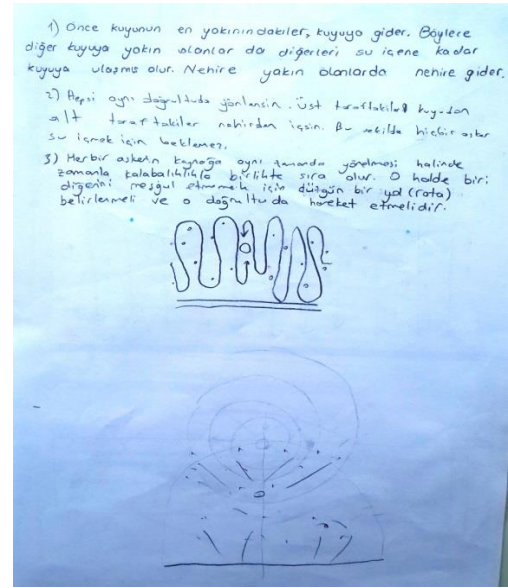 1) Önce kuyunun en yakınındakiler, kuyuya gider. Böylece
diğer kuyuya yakın olanlar da diğerleri su içene kadar
kuyuya ulaşmış olur. Nehire yakın olanlarda nehire gider.
2) Hepsi aynı doğrultuda yönlensin. Üst taraftakiler kuyudan
alt taraftakiler nehirden içsin. Bu şekilde hiçbir asker
su içmek için beklemez.
3) Herbir askerin kaynağa aynı zamanda yönelmesi halinde
zamanla kalabalıklıkla birlikte sıra olur. O halde biri
diğerini meşgul etmemek için düzgün bir yol (rota)
belirlenmeli ve o doğrultuda hareket etmelidir.